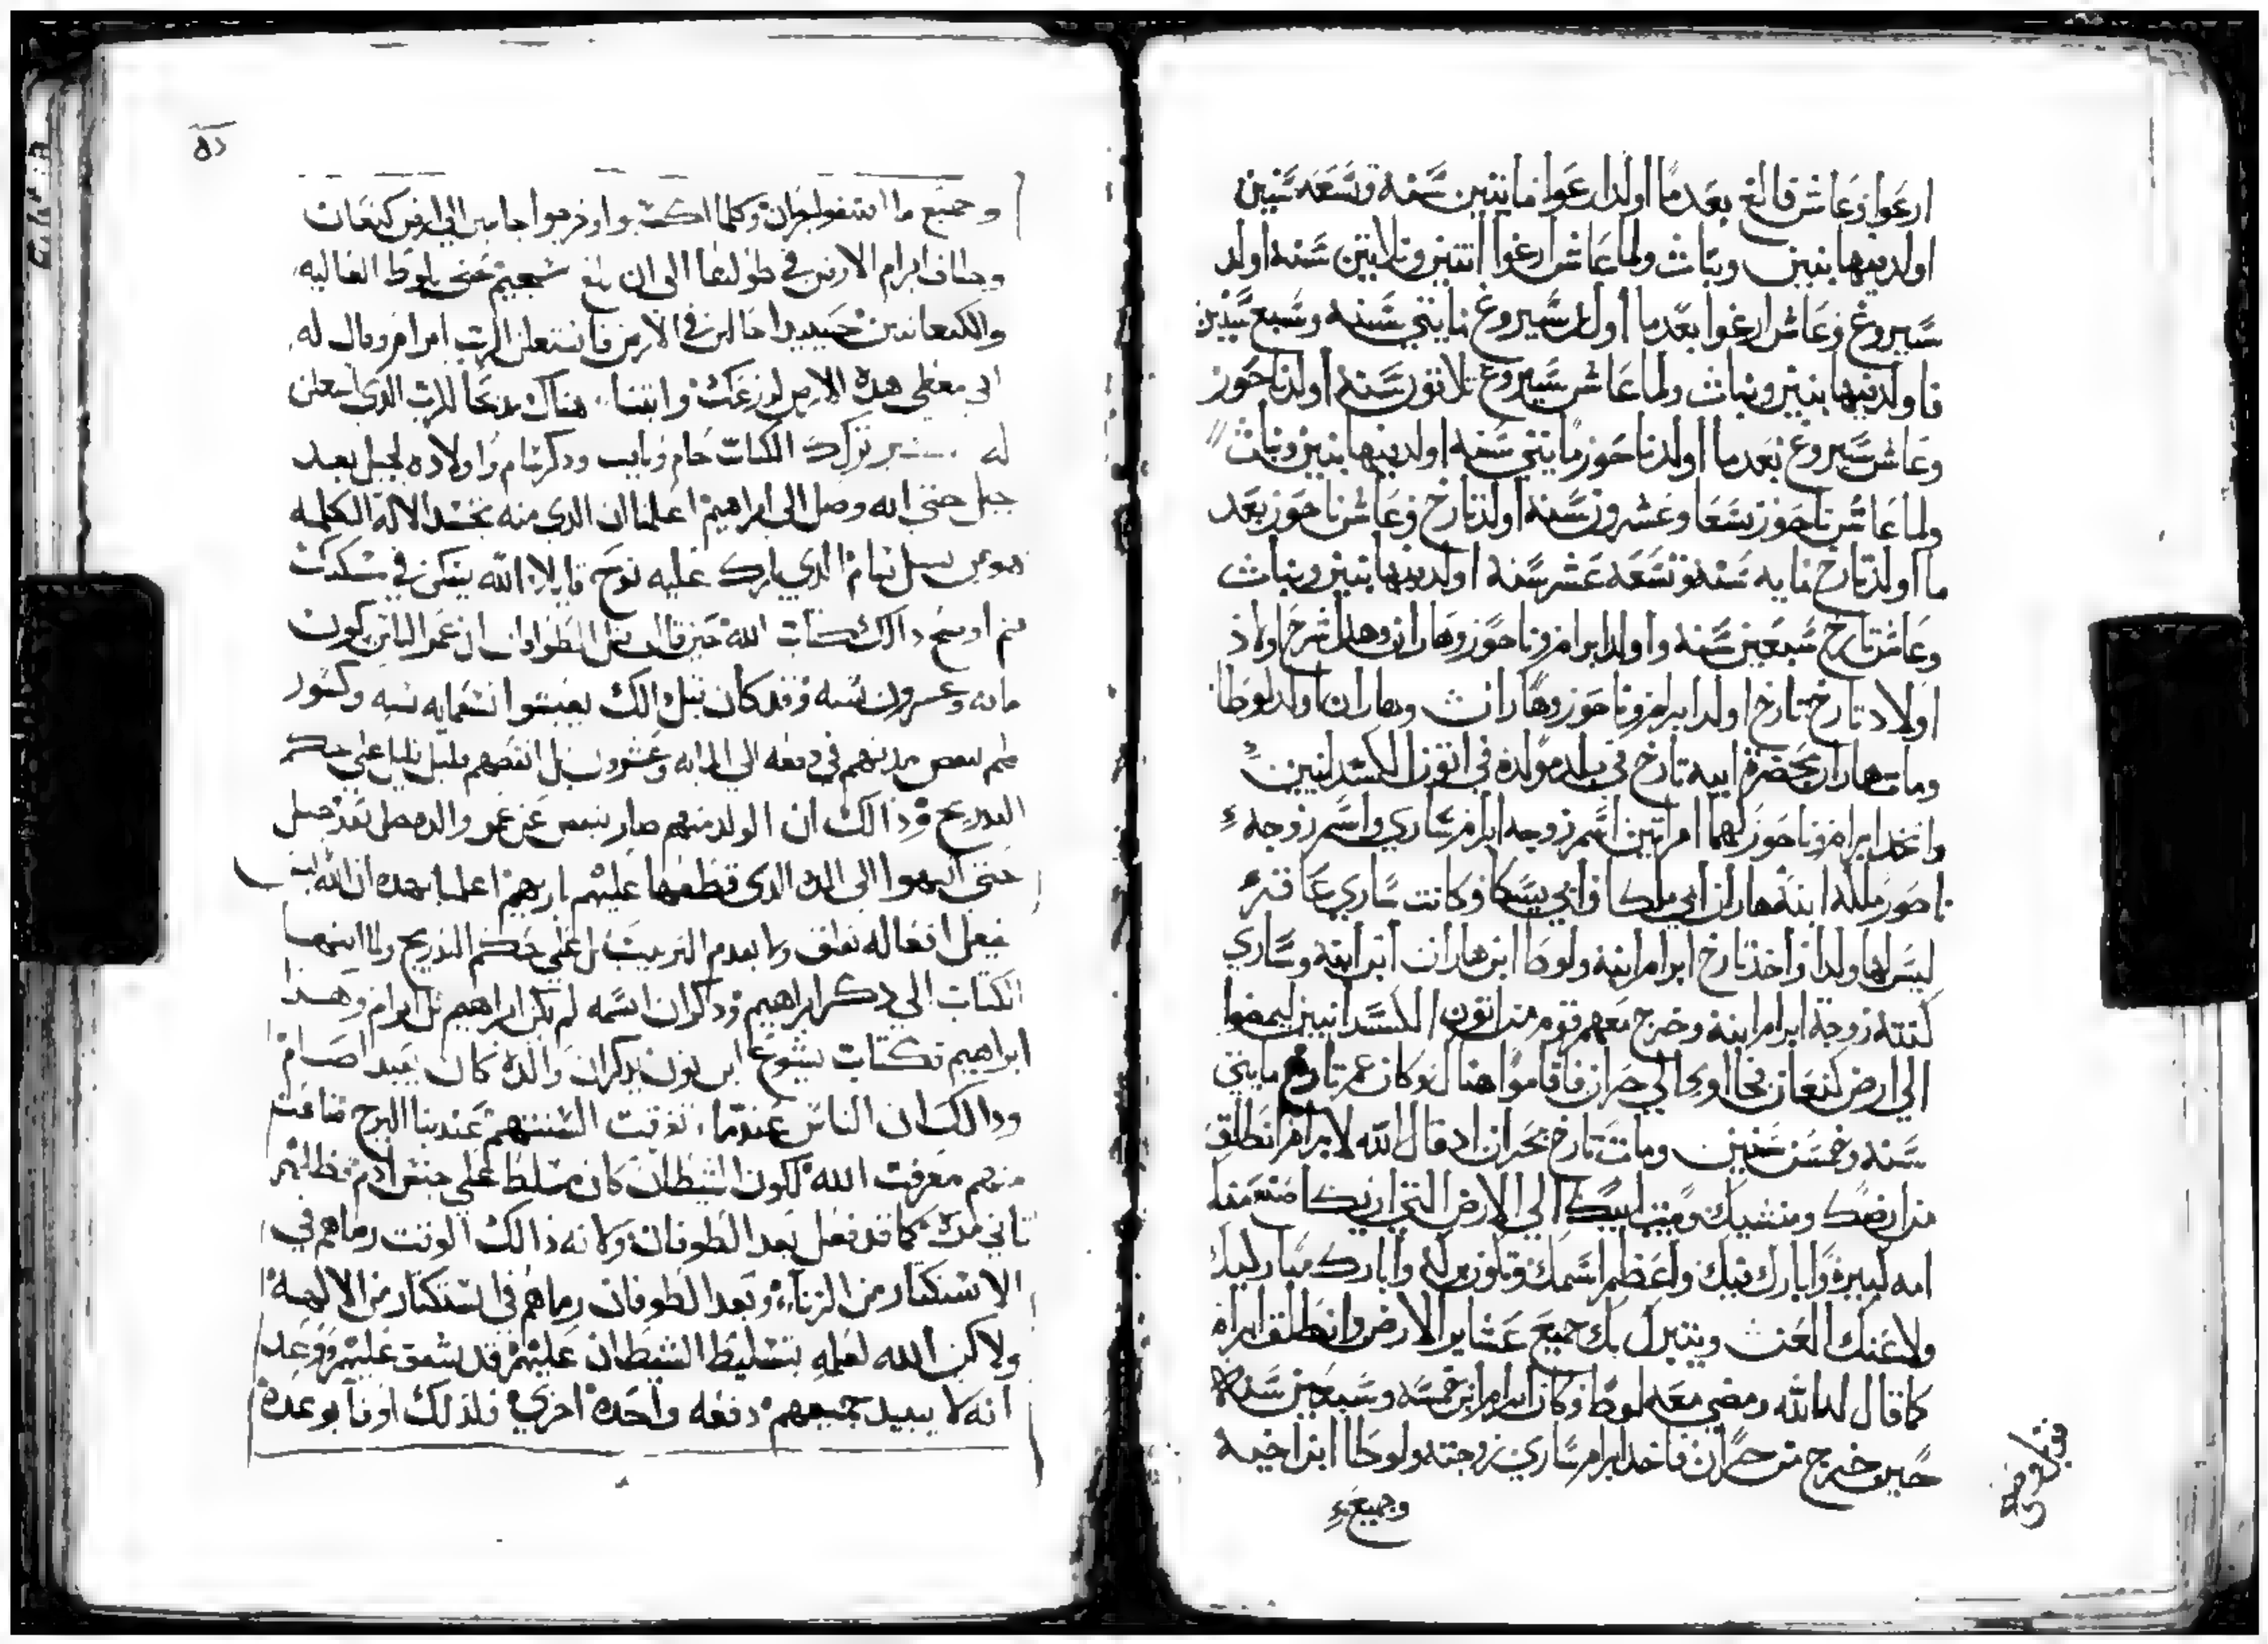 ارعوا وعاش فالغ بعد ما اولد ارعوا مايتين سنة وتسعه سنين
اولد فيها بنين وبنات ولما عاش ارغوا اثنين وثلاثين سنه اولد
سيروغ وعاش ارغوا بعد ما اولد سيروغ مايتي سنه وسبع سنين
فاولد فيها بنين وبنات ولما عاش سيروغ ثلاثون سنه اولد ناحور
وعاش سيروغ بعد ما اولد ناحور مايتي سنه اولد فيها بنين وبنات
ولما عاش ناحور تسعا وعشرون سنه اولد تارخ وعاش ناحور بعد
ما اولد تارخ مايه سنه وتسعه عشر سنه اولد فيها بنين وبنات
وعاش تارخ سبعين سنه واولد ابرام وناحور وهاران وهذا شرح اولاد
اولاد تارخ تارخ اولد ابرام وناحور وهاران وهاران اولد لوطا
ومات هاران بحضرة ابيه تارخ في بلد مولده في اتون الكسدانيين
واتخد ابرام وناحور لهما امراتين اسم زوجه ابرام ساري واسم زوجه
ناحور ملكه ابنة هاران ابي ملكا وابي يسكا وكانت ساري عاقره
ليس لها ولدا واخذ تارخ ابرام ابنه ولوطا ابن هاران ابن ابنه وساري
كنته زوجة ابرام ابنه وخرج معهم قوم من اتون الكسدانيين ليمضوا
الي ارض كنعان فجااوا الي حران فاقاموا هناك وكان عمر تارخ مايتي
سنه وخمس سنين ومات تارخ بحران اد قال الله لابرام انطلق
من ارضك ومنشيك وبيت ابيك الي الارض التي اريكا صنعمنك
امه كبيره وابارك فيك واعظم اسمك وتكون بركه وابارك مباركيك
ولاعنك العن ويتبرك بك جميع عشاير الارض وانطلق ابرام
كما قال له الله ومضي معه لوطا وكان ابرام ابن خمسه وسبعين سنه
حين خرج من حران فاخد ابرام ساري زوجته ولوطا ابن اخيه
وجميع
وجميع ما اقتنوا بحران وكلما اكتسبوا وخرجوا جايين الي ارض كنعان
وطاف ابرام الارض في طولها الي ان بلغ شجيم نحو بلوط العاليه
والكنعانيين حينيد داخلين في الارض فاستعلن الرب ابرام وقال له
اني معطي هده الارض لزرعك وابتنا هناك مدبحا للرب الدي استعلن
له تفسير ترك الكتاب حام ويافت ودكر سام واولاده لجيل بعد
جيل حتي انه وصل الي ابراهيم اعلمنا ان الدي منه تجسد الاله الكلمه
هو من نسل سام الدي بارك عليه نوح قايلا الله يسكن في مسكن
سم اوضح دالك كتاب الله حين قال قبل الطوفان ان عمر الناس يكون
مايه وعشرون سنه وقد كان قبل دالك يعيشوا تسعمايه سنه وكسور
فلم تنقص مدتهم في دفعه الي المايه وعشرون بل انقصهم قليل قليل علي حكم
التدريج ودالك ان الولد منهم صار ينقص عن عمر والده قليل بعد جيل
حتي انتهوا الي المده الدي قطعها عليهم بارهم اعلمنا بهده ان الله
يفعل افعاله بلطف ولا بعدم الترتيب بل علي حكم التدريج ولما انتها
الكتاب الي دكر ابراهيم ودكر ان اسمه لم يكن ابراهيم بل ابرام وهدا
ابراهيم بكتاب يشوع ابن نون يدكر ان والده كان يعبد اصنام
ودالك ان الناس عندما تفرقت السنتهم عند بنا البرج ضاعت
منهم معرفت الله لكون الشيطان كان مسلط علي جنس ادم
تاني مره كما قد فعل بعد الطوفان ولانه دالك الوقت رماهم في
الاستكتار من الزناء وبعد الطوفان رماهم في استكتار من الالهه
ولاكن الله لعلمه بتسليط الشيطان عليهم قد شفق عليهم ووعد
انه لا يبيد جميعهم دفعه واحده اخري فلذلك اوفا بوعده